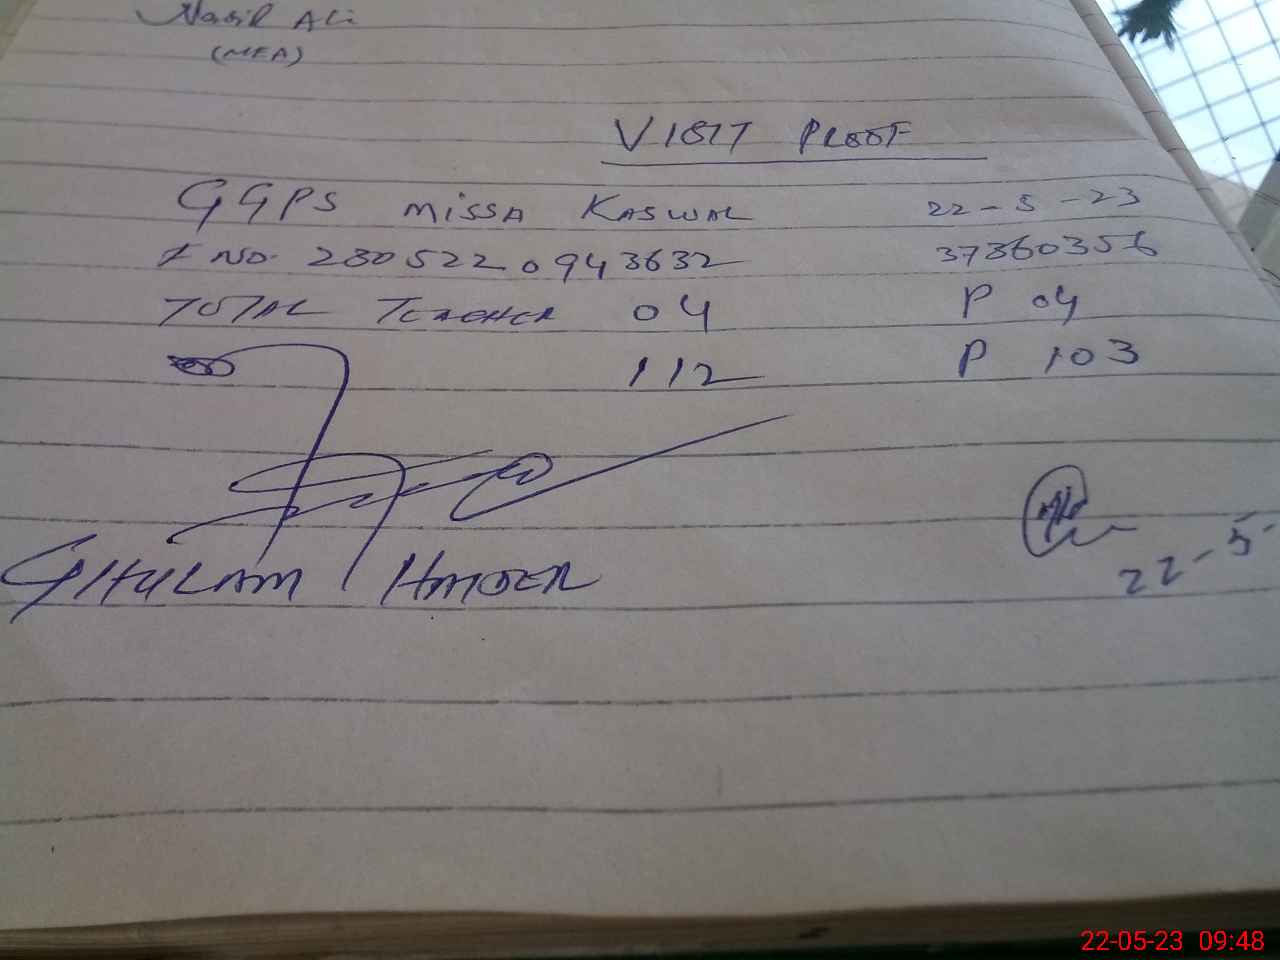 Nabil Ali
(MEA)
VISIT PROOF
GGPS MISSA KASWAL 22-5-23
I NO. 280522 0943632 37360356
TOTAL TEACHER 04 P 04
112 P 103
GHULAM HAIDER
22-5-
22-05-23 09:48